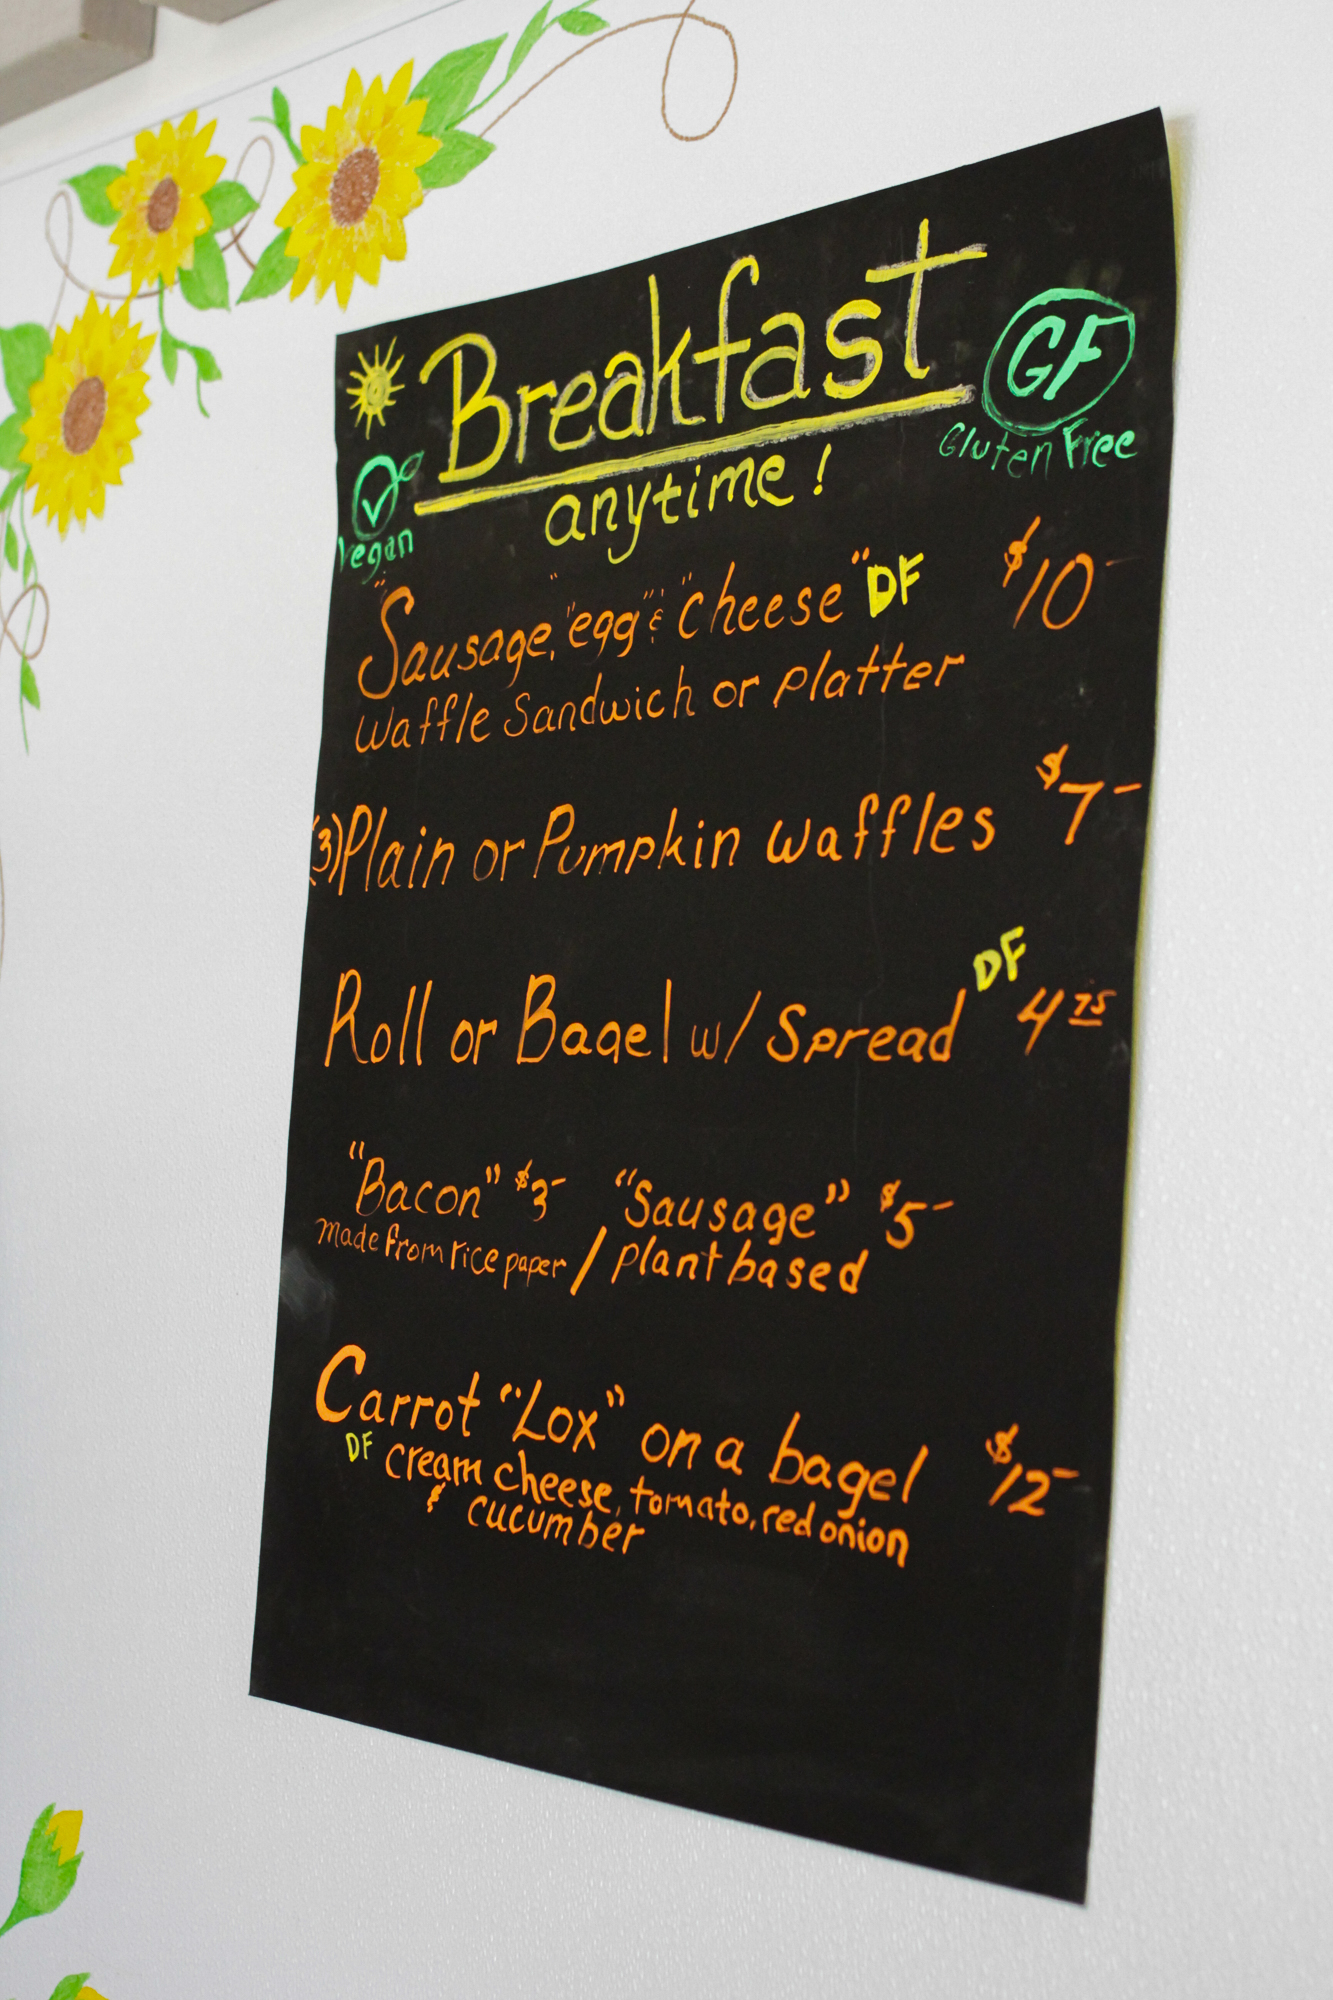 Breakfast
GF
Gluten Free
Vegan
anytime!
"Sausage," "egg" & "cheese" DF $10-
Waffle Sandwich or platter
(3) Plain or Pumpkin waffles $7-
Roll or Bagel w/ Spread DF 4 75
"Bacon" $3- "Sausage" $5-
made from rice paper / plant based
Carrot "Lox" on a bagel $12-
DF cream cheese, tomato, red onion
& cucumber